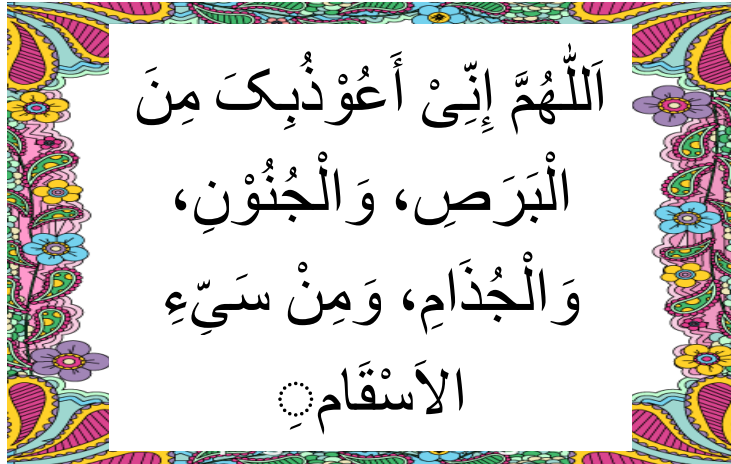 اَللّٰهُمَّ إِنِّیْ أَعُوْذُبِکَ مِنَ
الْبَرَصِ، وَالْجُنُوْنِ،
وَالْجُذَامِ، وَمِنْ سَيِّءِ
الاَسْقَام◌ِ